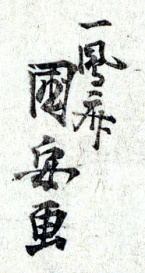 一鳳斎
國安画